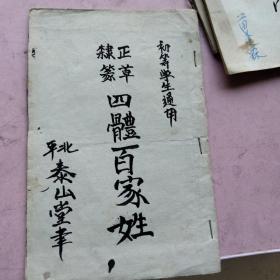 初等學生適用
正草
隸篆
四體百家姓
北平
泰山堂聿